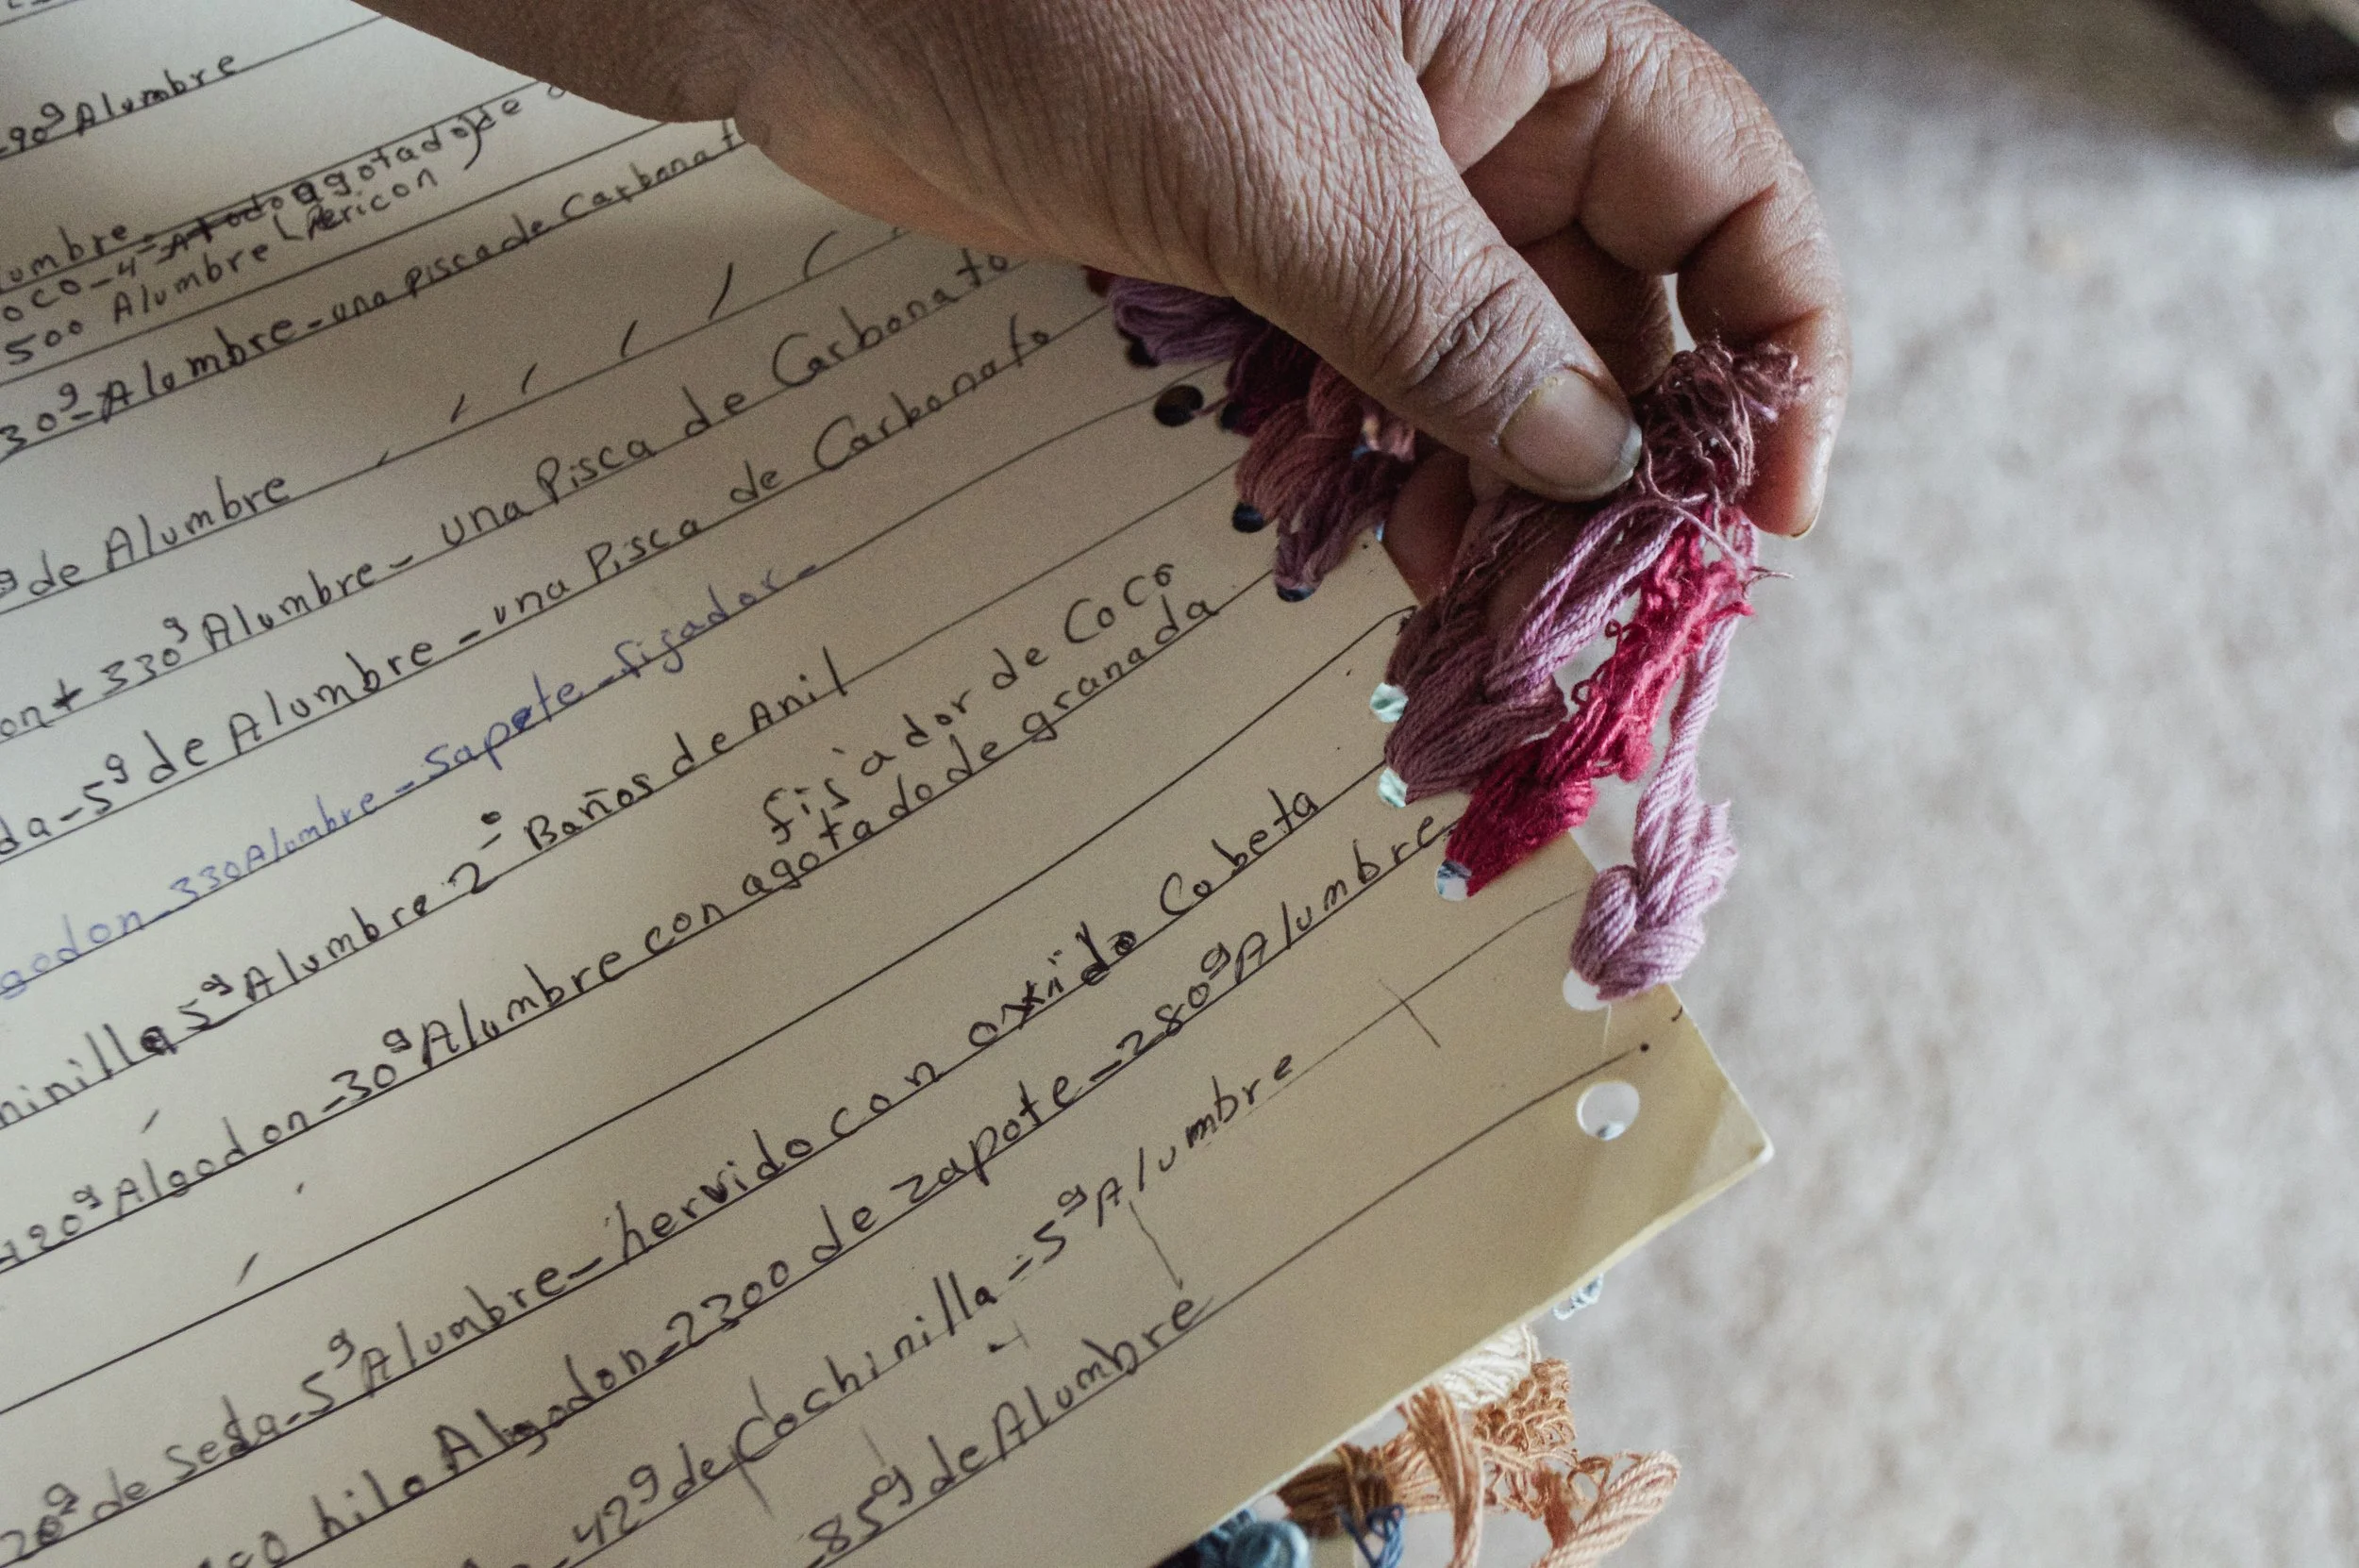 90g Alumbre
Alumbre - todo agotado de
oco-4=
500 Alumbre Pericon
30g-Alumbre-una pisca de Carbonat
g de Alumbre
on+330g Alumbre-una Pisca de Carbonato
da-5g de Alumbre-una Pisca de Carbonato
godon-330Alumbre-sapote-figador-
ninilla 5g Alumbre 2º Baños de Anil
fisador de Coco
120g Algodon-30g Alumbre con agotado de granada
20g de Seda-5g Alumbre-hervido con oxido Cubeta
hilo Algodon-2300 de zapote-280g Alumbre
42g de Cochinilla=5g Alumbre
85g de Alumbre